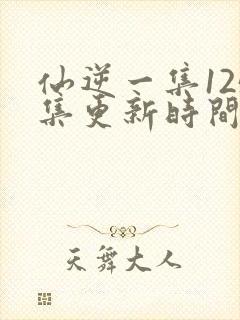 仙逆一集12
集更新時間
天舞大人